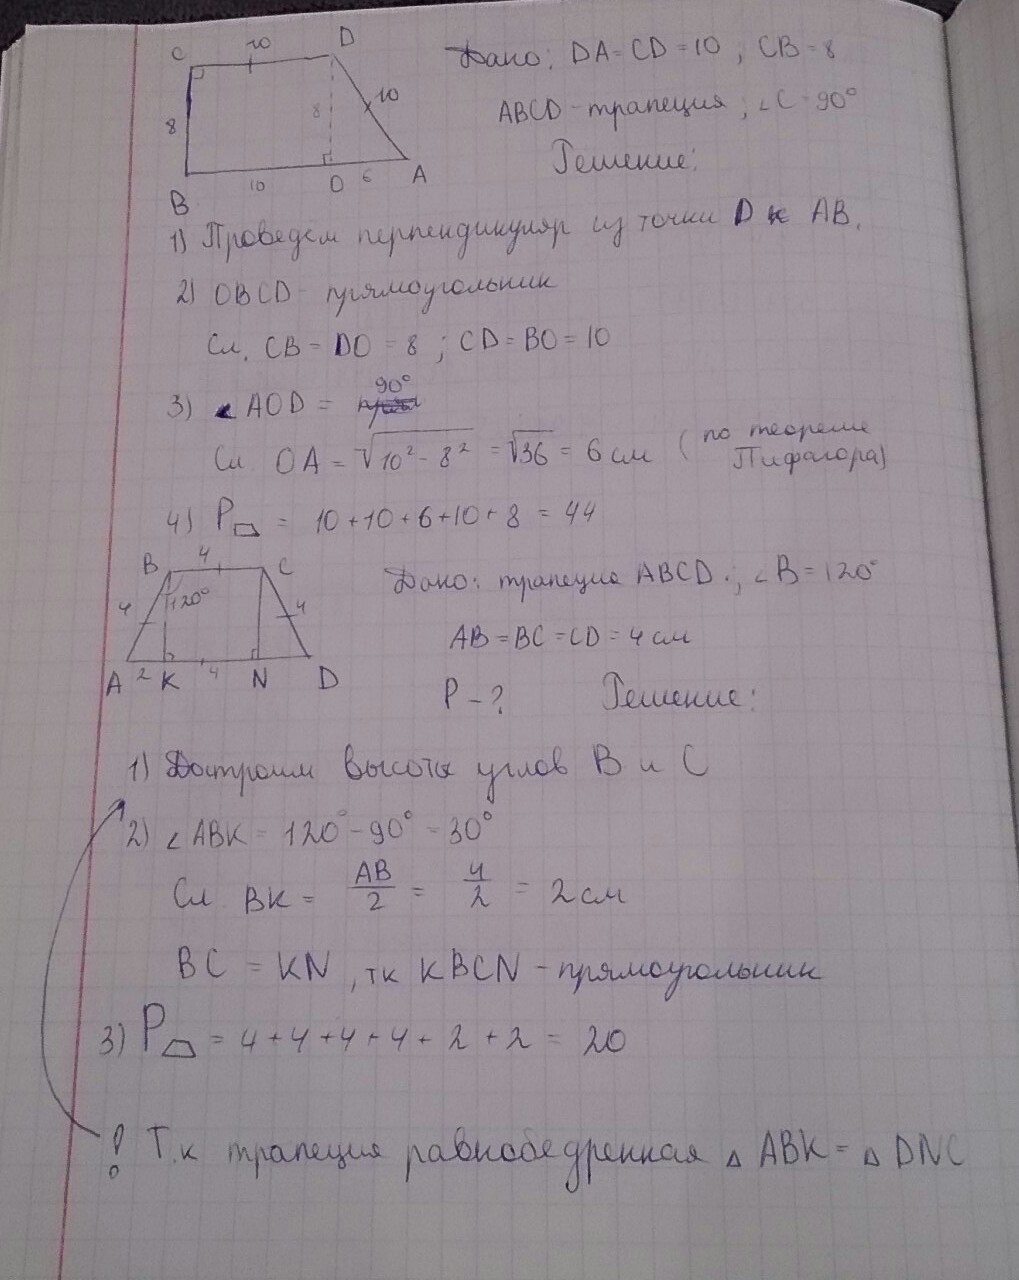 C 10 D
8 8 10
B 10 O 6 A
Дано: DA = CD = 10 ; CB = 8
ABCD - трапеция ; ∠C = 90°
Решение:
1) Проведем перпендикуляр из точки D к AB.
2) OBCD - прямоугольник
Сл. CB = DO = 8 ; CD = BO = 10
3) ∠AOD = 90°
Сл OA = √10² - 8² = √36 = 6 см (по теореме Пифагора)
4) P▱ = 10 + 10 + 6 + 10 + 8 = 44
B 4 C
4 120° 4
A 2 K 4 N D
Дано: трапеция ABCD ; ∠B = 120°
AB = BC = CD = 4 см
P - ? Решение:
1) Достроим высоты углов B и C
2) ∠ABK = 120° - 90° = 30°
Сл BK = AB/2 = 4/2 = 2 см
BC = KN , тк KBCN - прямоугольник
3) P▱ = 4 + 4 + 4 + 4 + 2 + 2 = 20
! Т.к трапеция равнобедренная △ ABK = △ DNC